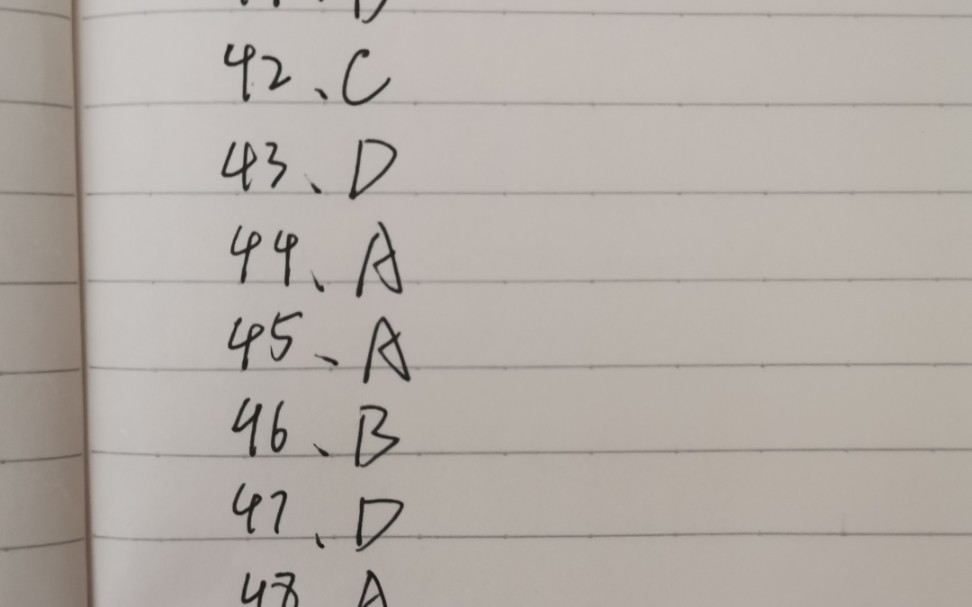 42、C
43、D
44、A
45、A
46、B
47、D
48、A